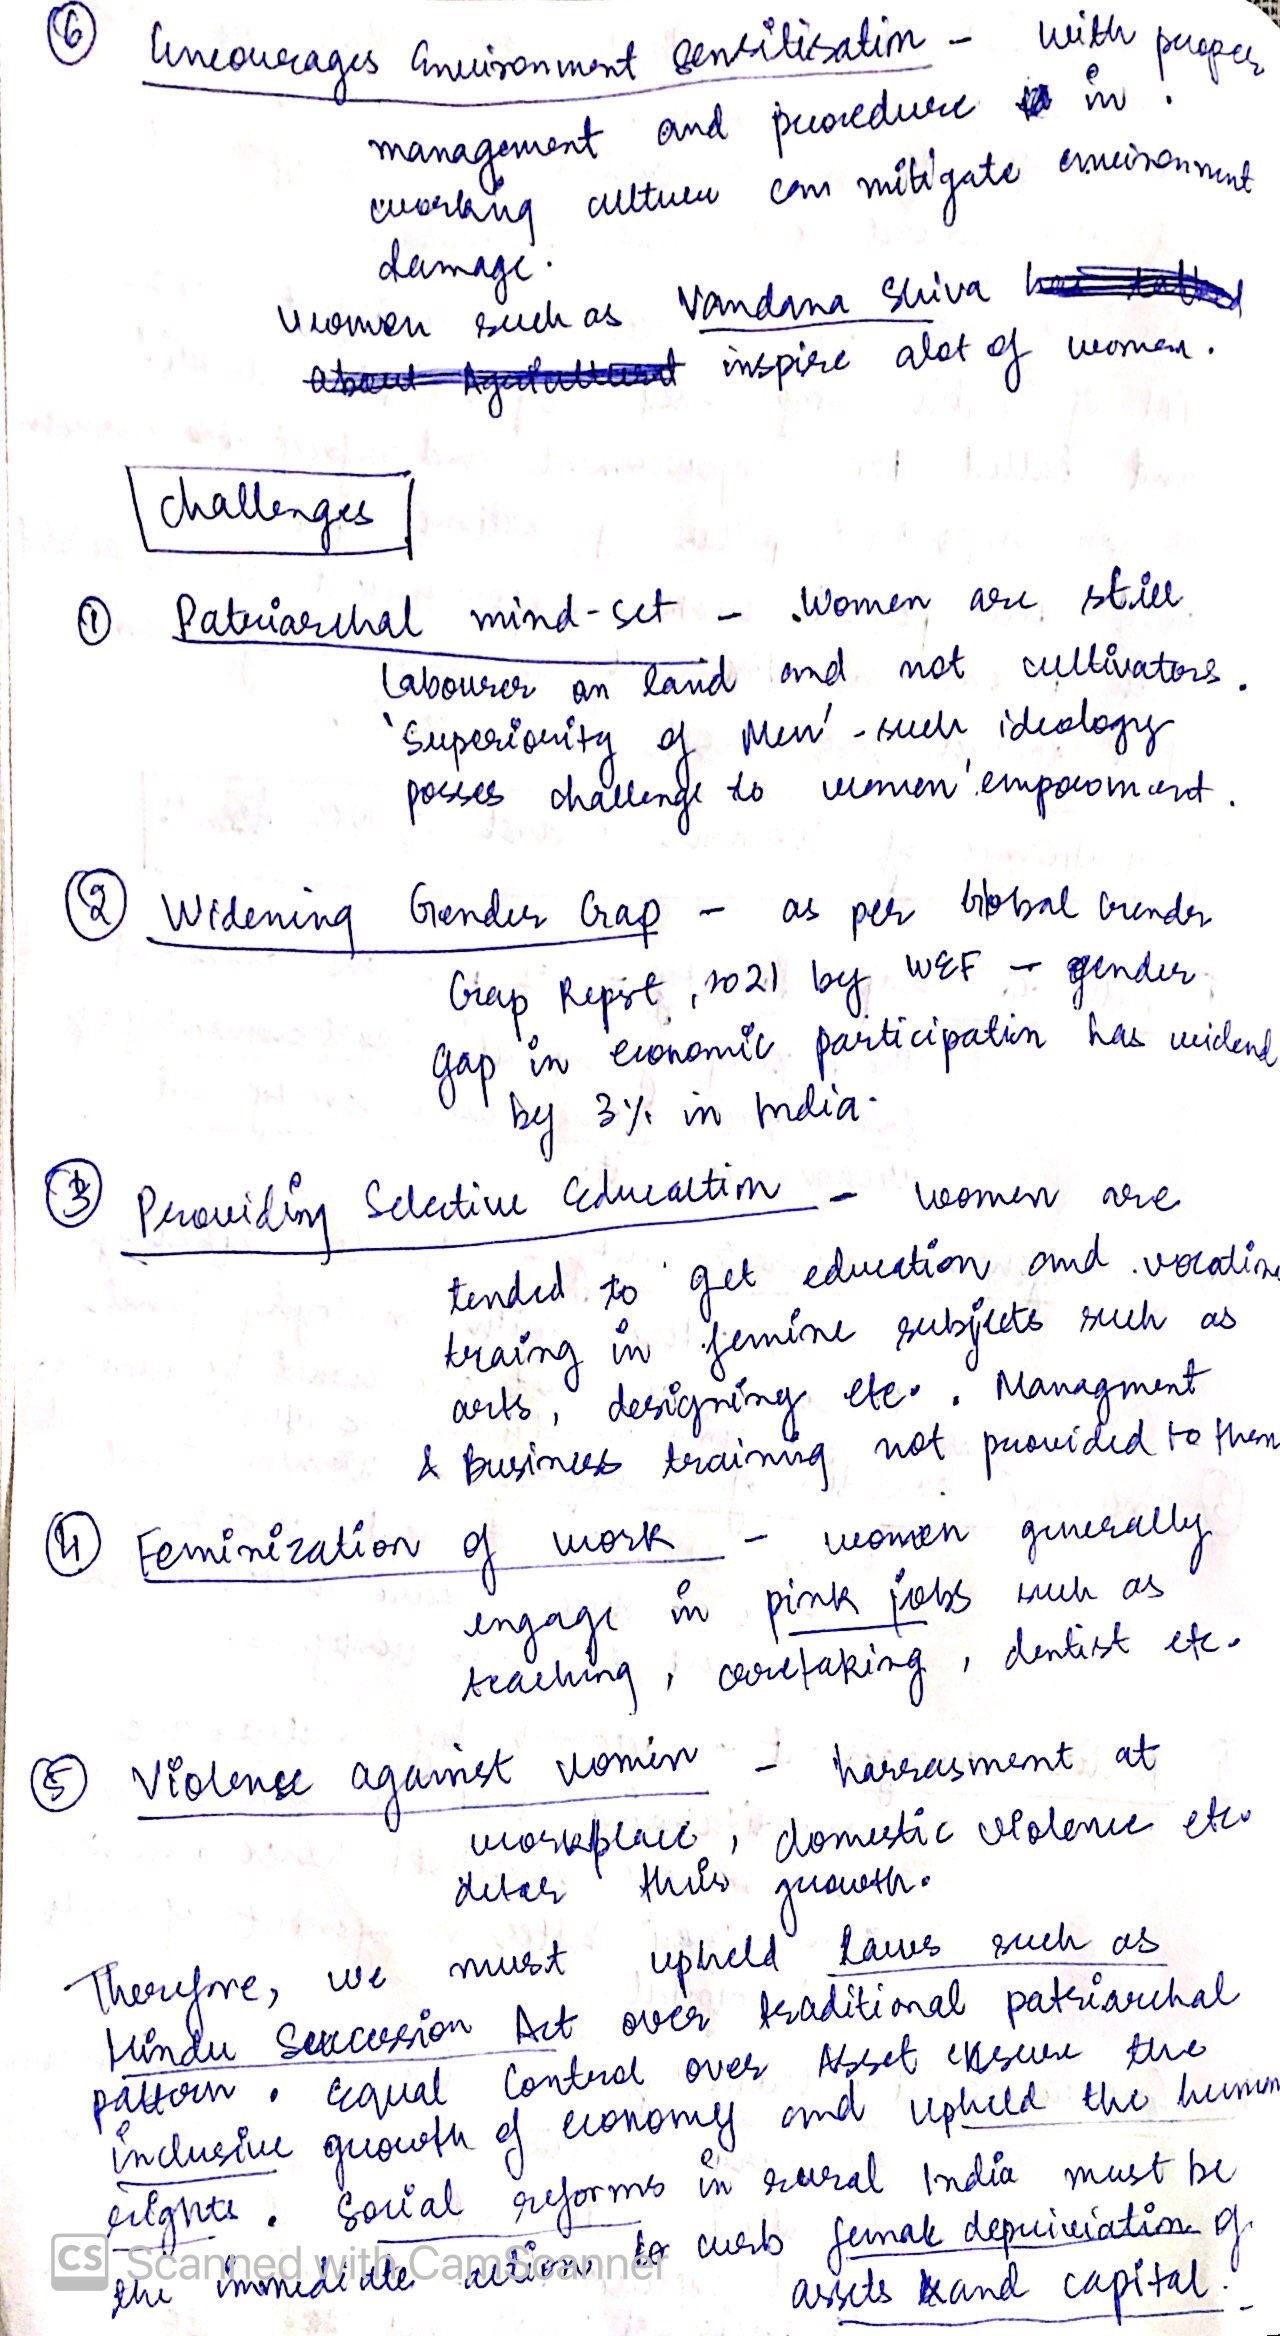 ⑥ Encourages Environment Sensitisation - with proper
management and procedure in
working culture can mitigate environment
damage.
Women such as Vandana Shiva has talked
about Agricultural inspire alot of women.
Challenges
① Patriarchal mind-set - Women are still
labourer on land and not cultivators.
'Superiority of Men' - such ideology
posses challenge to women' empowerment.
② Widening Gender Gap - as per Global Gender
Gap Report, 2021 by WEF - gender
gap in economic participation has widend
by 3% in India.
③ Providing Selective Education - women are
tended to get education and vocation
traing in femine subjects such as
arts, designing etc. . Managment
& Business training not provided to them
④ Feminization of work - women generally
engage in pink jobs such as
teaching, caretaking, dentist etc.
⑤ Violence against women - harrasment at
workplace, domestic violence etc.
deter this growth.
Therefore, we must upheld laws such as
Hindu Succession Act over traditional patriarchal
pattern. Equal Control over Asset ensure the
inclusive growth of economy and upheld the human
rights. Social reforms in rural India must be
the immediate action to curb female depriviation of
assets and capital.
CS Scanned with CamScanner